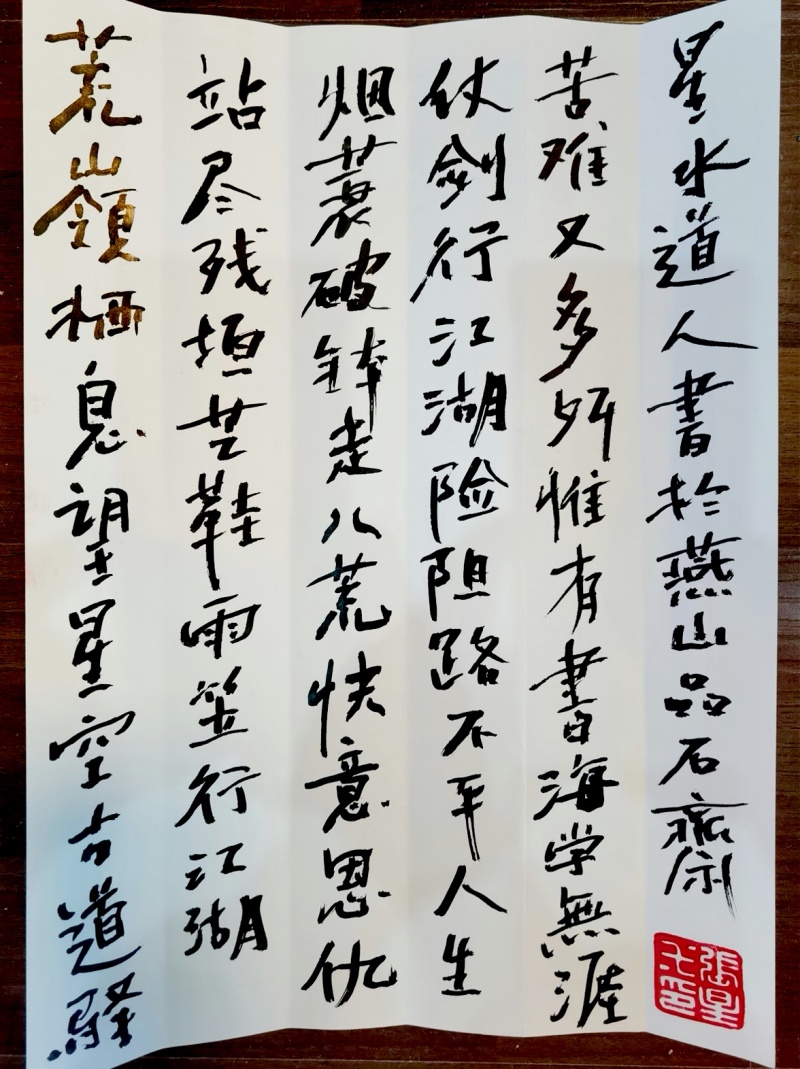 荒山嶺栖息望星空古道驿
站尽残垣芒鞋雨笠行江湖
烟蓑破鉢走八荒快意恩仇
仗剑行江湖险阻路不平人生
苦难又多舛惟有書海学無涯
星水道人書於燕山品石齋